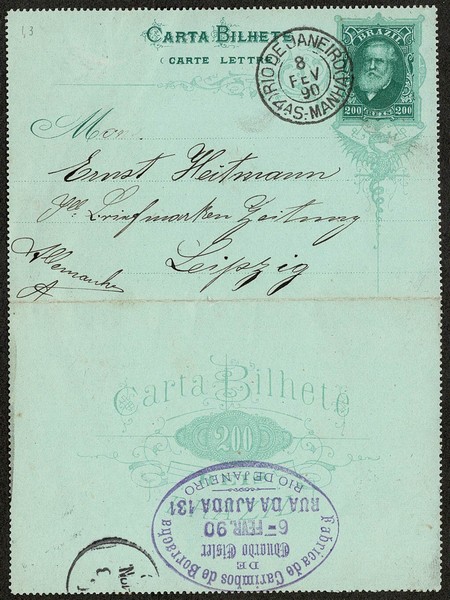 1,3
CARTA BILHETE
(CARTE LETTRE)
BRAZIL
200 REIS 200
RIO DE JANEIRO
8
FEV
90
4AS-MANHÃ
Mon
Ernst Heitmann
Ill. Briefmarken Zeitung
Leipzig
Allemanha
Carta Bilhete
200
Fabrica de Carimbos de Borracha
DE
Eduardo Eisler
6 FEVR. 90
RUA DA AJUDA 131
RIO DE JANEIRO